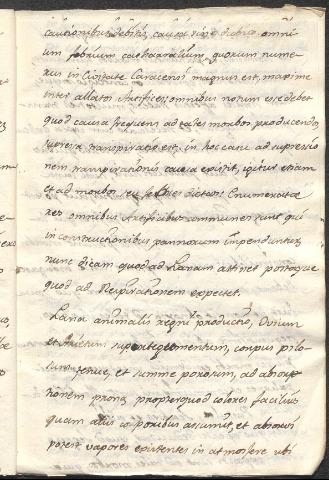 cautionibus debitis, causa sine dubio omni
um febrium catharralium, quorum nume
rus in Civitate Caracensi magnus est, maxime
inter allatos Artifices; omnibus notum esse debet
quod causa frequens ad tales morbos producendos
supressa transpiratio est, in hoc casu ad supressio
nem transpirationis causa existit, igitur etiam
et ad morbos seu febres dictas. Enumeratæ
res omnibus Artificibus communes sunt qui
in constructionibus pannorum impenduntur,
nunc dicam quod ad Lanam attinet postea que
quod ad Respirationem expectet.
Lana animalis regni productio, Ovium
et Arietum supertegumentum, corpus pilo
sum, tenue, et summe porosum, ad absorp
tionem prona, propterquod colores facilius
quam aliis corporibus assumit, et absorvere
potest vapores existentes in atmosfere ubi